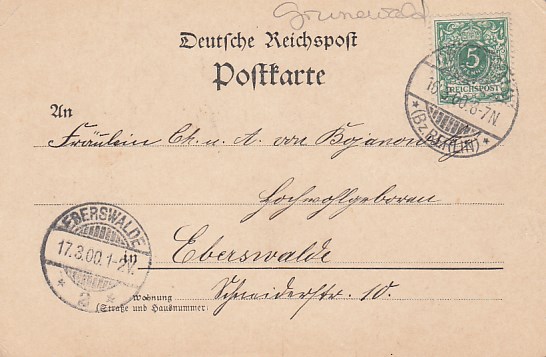 Grunewald
Deutsche Reichspost
Postkarte
5
REICHSPOST
16.3.00.6-7N
*(BZ. BERLIN)*
An
Fräulein Ch. u. A. von
Hochwohlgeboren
EBERSWALDE
17.3.00.1-2V.
* a *
in
Eberswalde
Wohnung
(Straße und Hausnummer)
Schneiderstr. 10.